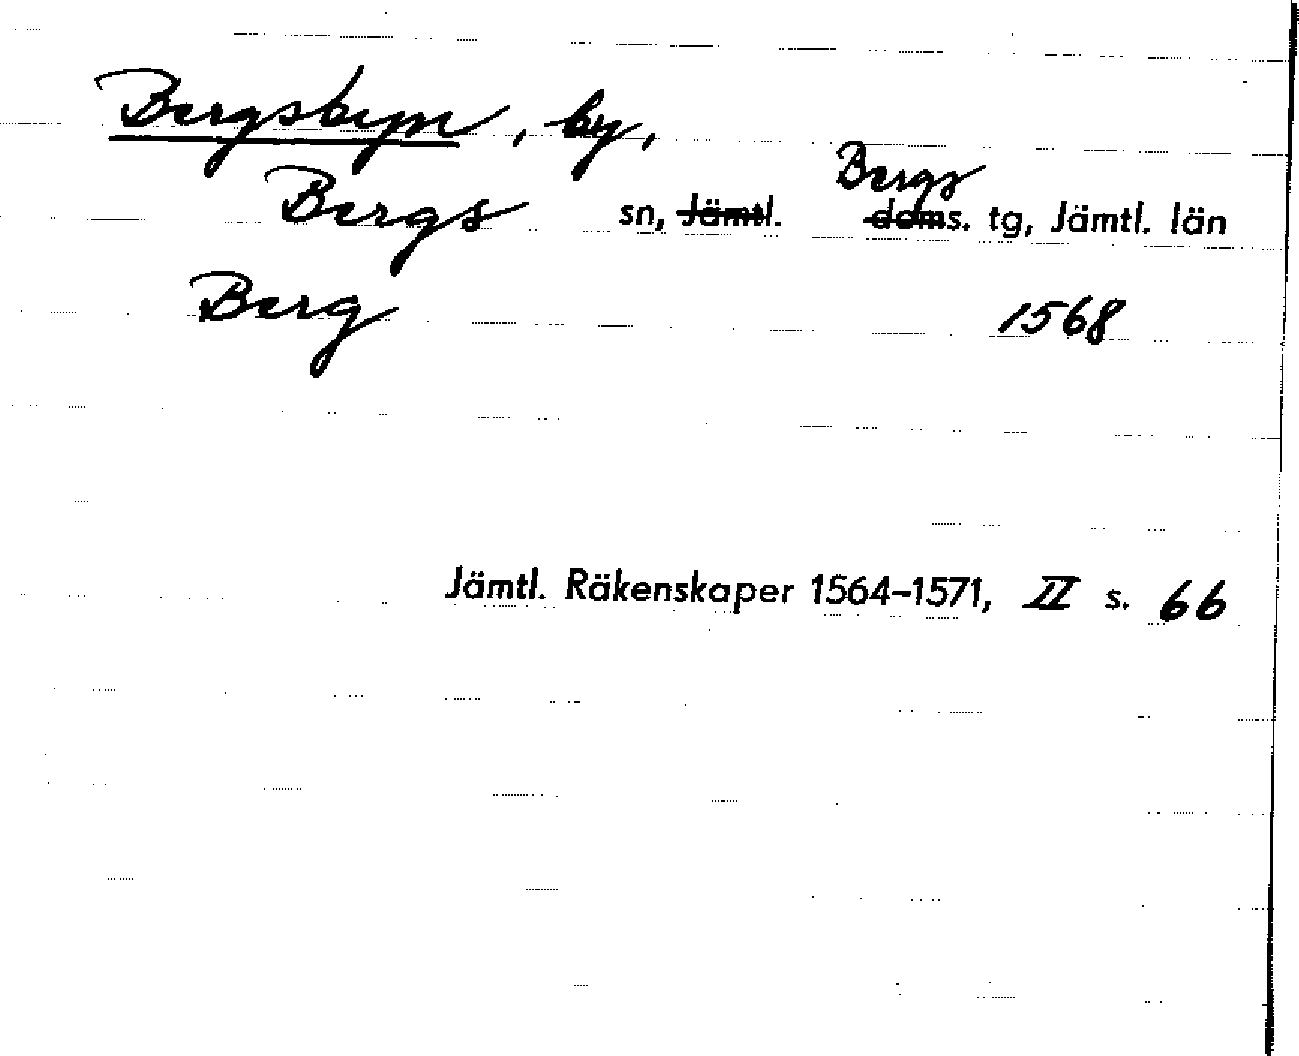 Bergsbyn, by,
Bergs sn, Jämtl. Bergs doms. tg, Jämtl. län
Berg 1568
Jämtl. Räkenskaper 1564–1571, II s. 66